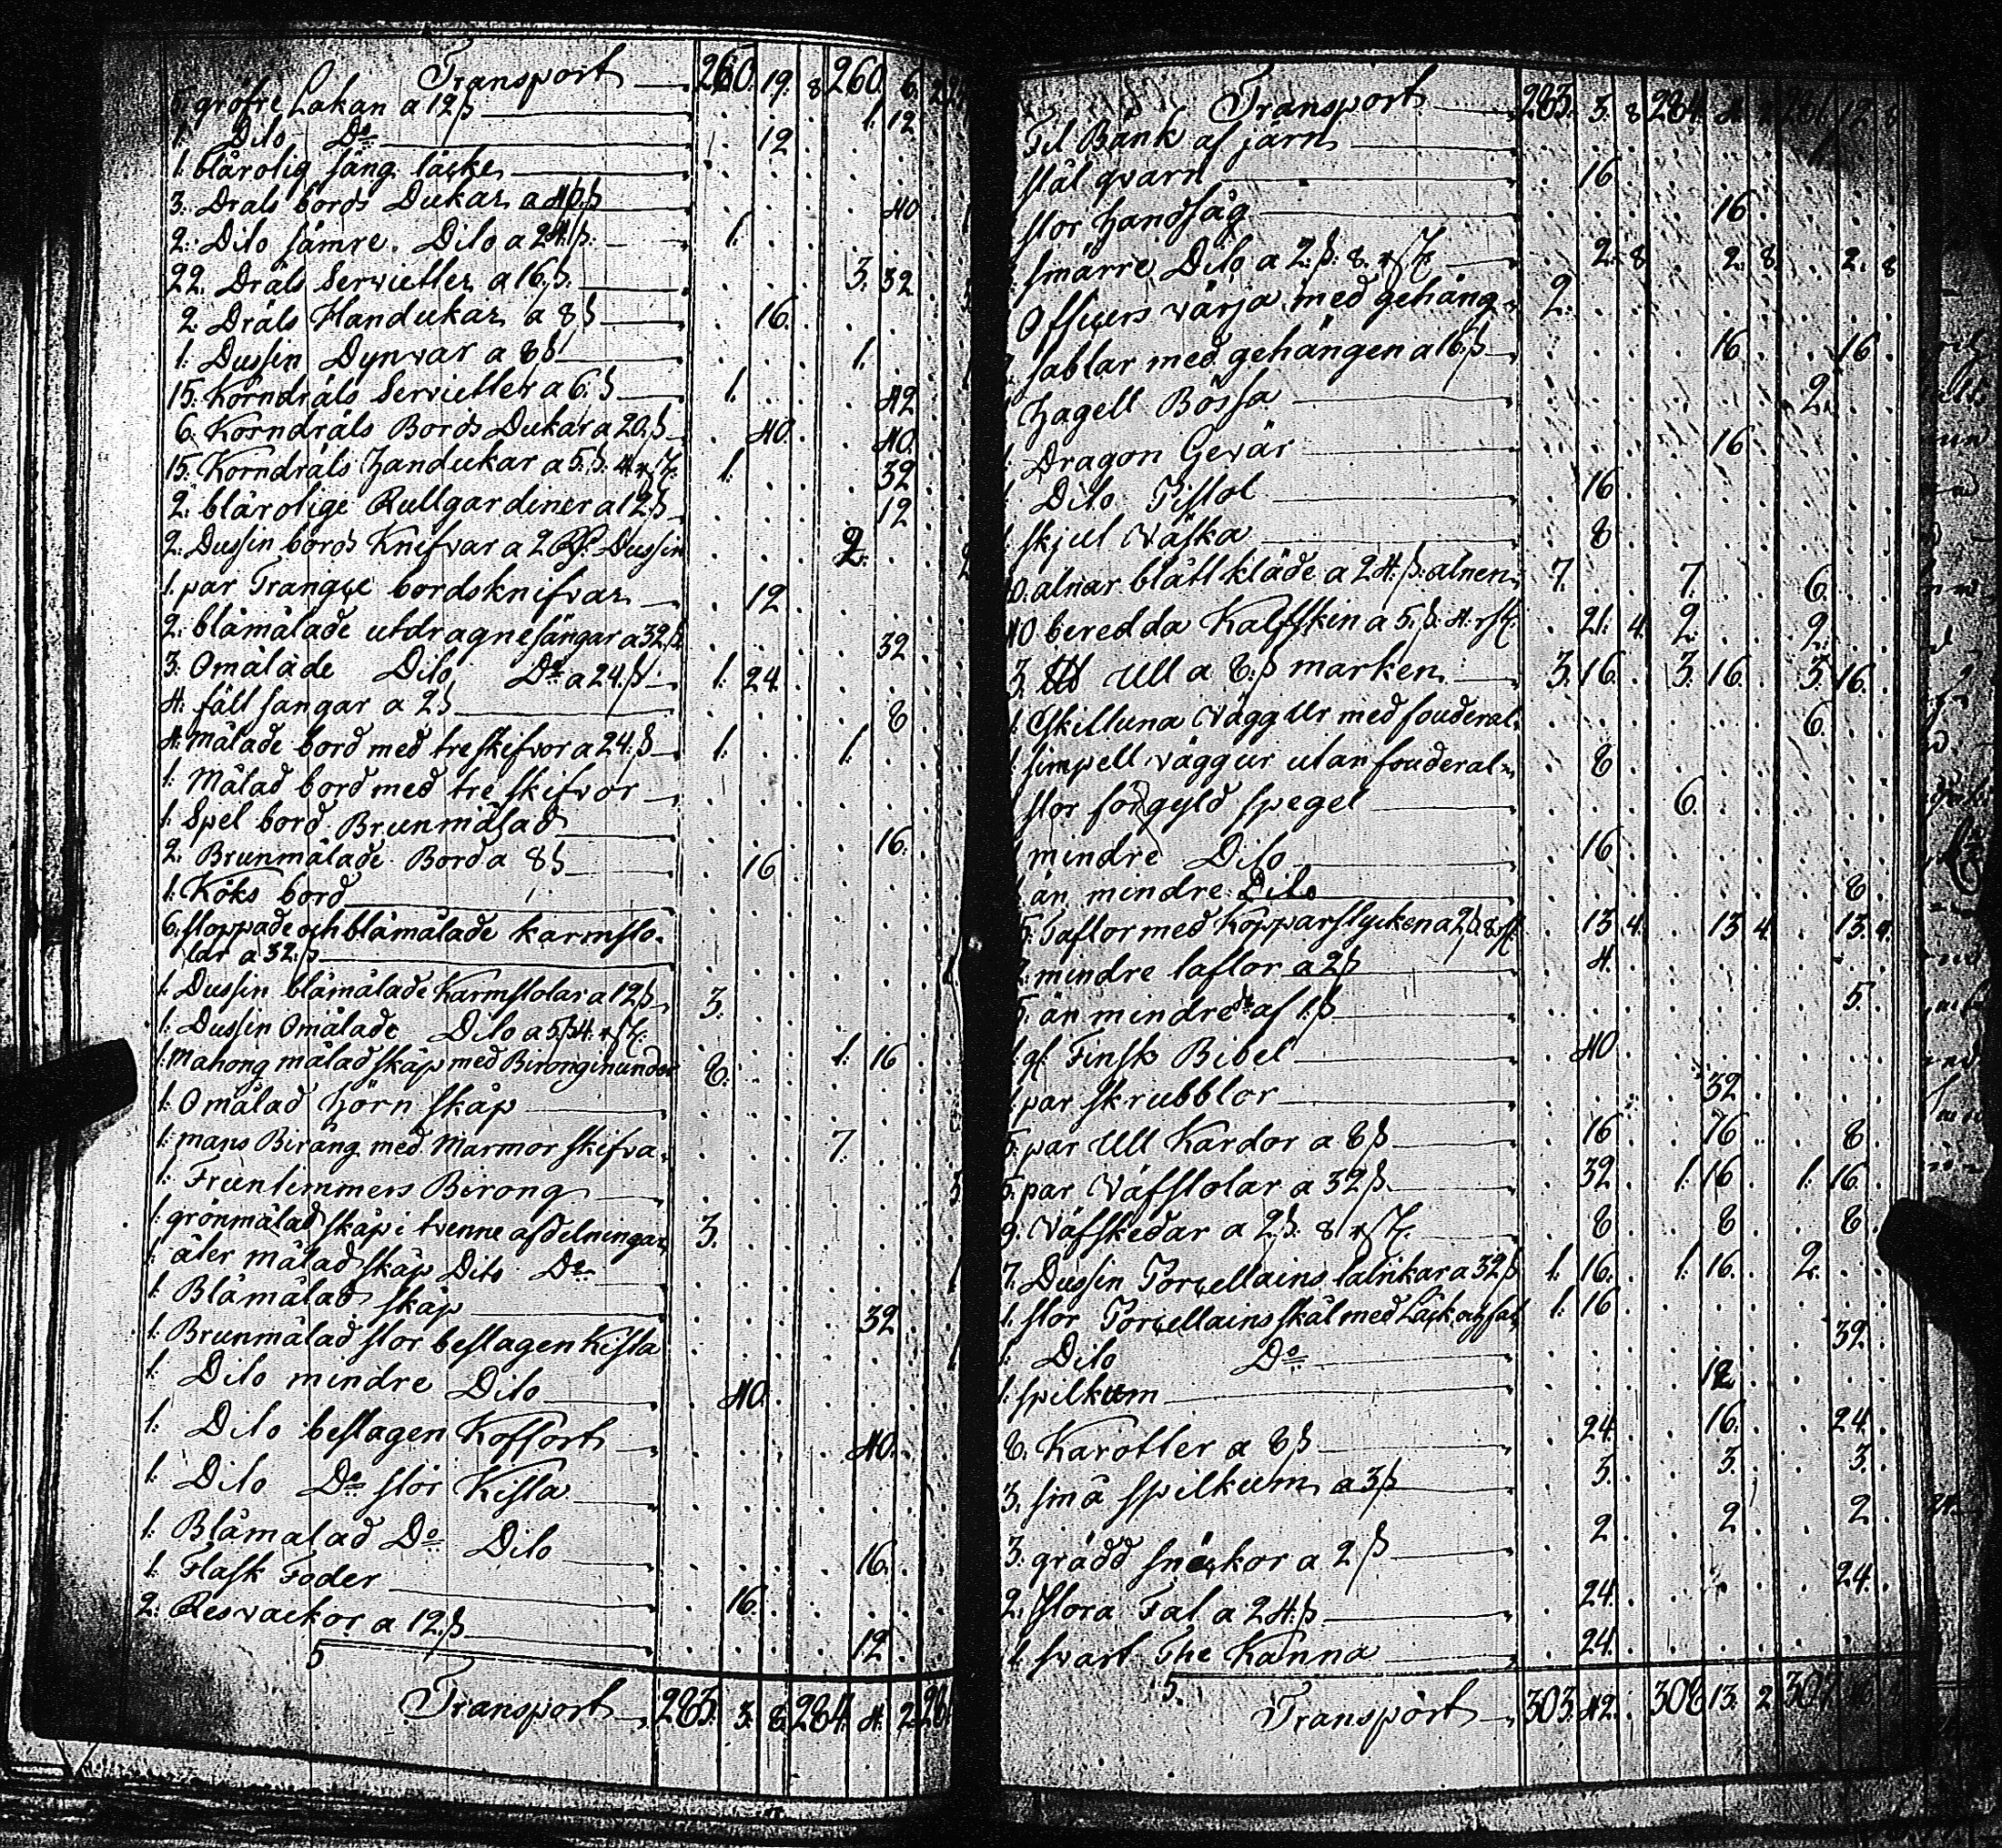 Transport 260. 19. 8 260. 6.
6. gröfre Lakan a 12 ß 1. 12
1. Dito Do 12
1. blårolig säng täcke
3. Dräls bords Dukar a 40 ß 40
2. Dito sämre Dito a 24. ß. 1.
22. Dräls Servietter a 16. ß. 3. 32
2. Dräls Handukar a 8 ß 16.
1. Dussin Dynvar a 8 ß 1.
15. Korndräls Servietter a 6. ß 1. 42
6. Korndräls Bords Dukar a 20. ß 40. 40.
15. Korndräls Handukar a 5. ß. 4 rst. 1. 32
2. blårolige Rullgardiner a 12. ß 12
2. Dussin bords Knifvar a 2 Dussin 2.
1. par Trangçe bordsknifvar 12
2. blåmålade utdragne sängar a 32. ß 32
3. Omålade Dito Do a 24. ß 1. 24.
4. fält sangar a 2 ß 8
4. målade bord med tre skifvor a 24. ß 1. 1.
1. Målad bord med tre skifvor
1. Spel bord Brunmålad 16.
2. Brunmålade Bord a 8 ß 16
1. Köks bord
6. stoppade och blåmålade karmsto-
lar a 32. ß
1. Dussin blåmålade Karmstolar a 12 ß 3.
1. Dussin Omålade Dito a 5. ß 4. rst.
1. Mahong målad skåp med Birong inunder 8. 1. 16
1. Omålad hörn skåp
1. mans Birång med Marmor skifva 7.
1. Fruntimmers Birong
1. grönmålad skåp i tvenne afdelningar 3.
1. åter målad skåp Dito Do
1. Blåmålad skåp 32
1. Brunmålad stor beslagen Kista
1. Dito mindre Dito 40.
1. Dito beslagen Koffort 40.
1. Dito Do stör Kista
1. Blåmalad Do Dito 16.
1. Flask Foder 16.
2. Resvackor a 12. ß 12
Transport 283. 3. 8. 284. 4. 2. 281
Transport 283. 3. 8 284. 4. 2 281. 12. 8
Fil Bänk af järn
stål qvarn 16
stor handsåg 16
smärre Dito a 2. ß. 8. rst. 2. 8 2. 8 2. 8
Officers värja med gehäng 2.
sablar med gehängen a 16. ß 16 16.
hagell Bössa 2.
1. Dragon Gevär 16
1. Dito Pistol 16
1. skjut väska 8
alnar blått kläde a 24. ß. alnen 7. 7. 6.
beredda Kalfskin a 5. ß. 4. rst. 21. 4. 2. 2.
3. Ull a 8. ß marken 3. 16. 3. 16. 3. 16.
1. Eskilluna vägg Ur med fouderal 6.
1. simpell väggur utan fouderal 8
stor förgyld spegel 6.
mindre Dito 16
än mindre Dito 8
5. Taflor med Kopparstycken a 2 ß. 8 rst. 13. 4. 13 4. 13. 4.
2. mindre taflor a 2 ß 4.
5. än mindre do af 1. ß 5.
1. gl. Finsk Bibel 40
1. par skrubblor 32
5. par Ull Kardor a 8 ß 16 16 8
5. par Väfstolar a 32 ß 32 1. 16 1. 16
9. Väfskedar a 2. ß. 8 rst. 8 8 8
7. Dussin Porçellains talrikar a 32 ß 1. 16. 1. 16. 2.
1. stor Porçellains skål med Låck och fat 1. 16
1. Dito Do 32.
1. spilkum 12
8. Karotter a 8 ß 24. 16. 24.
3. små spilkum a 3 ß 3. 3. 3.
3. grädd snäckor a 2 ß 2. 2 2.
2. stora Fat a 24. ß 24. 24.
1. svart The Kanna 24.
Transport 303. 42. 308. 13. 2